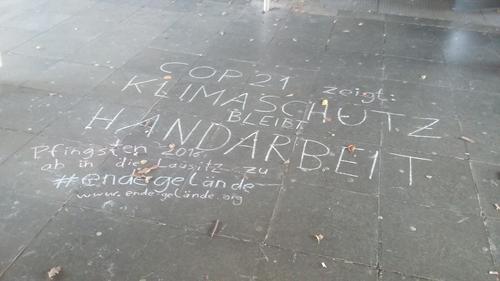 COP 21 zeigt:
KLIMASCHUTZ
BLEIBT
HANDARBEIT
Pfingsten 2016,
ab in die Lausitz zu
#endegelände
www.ende-gelände.org